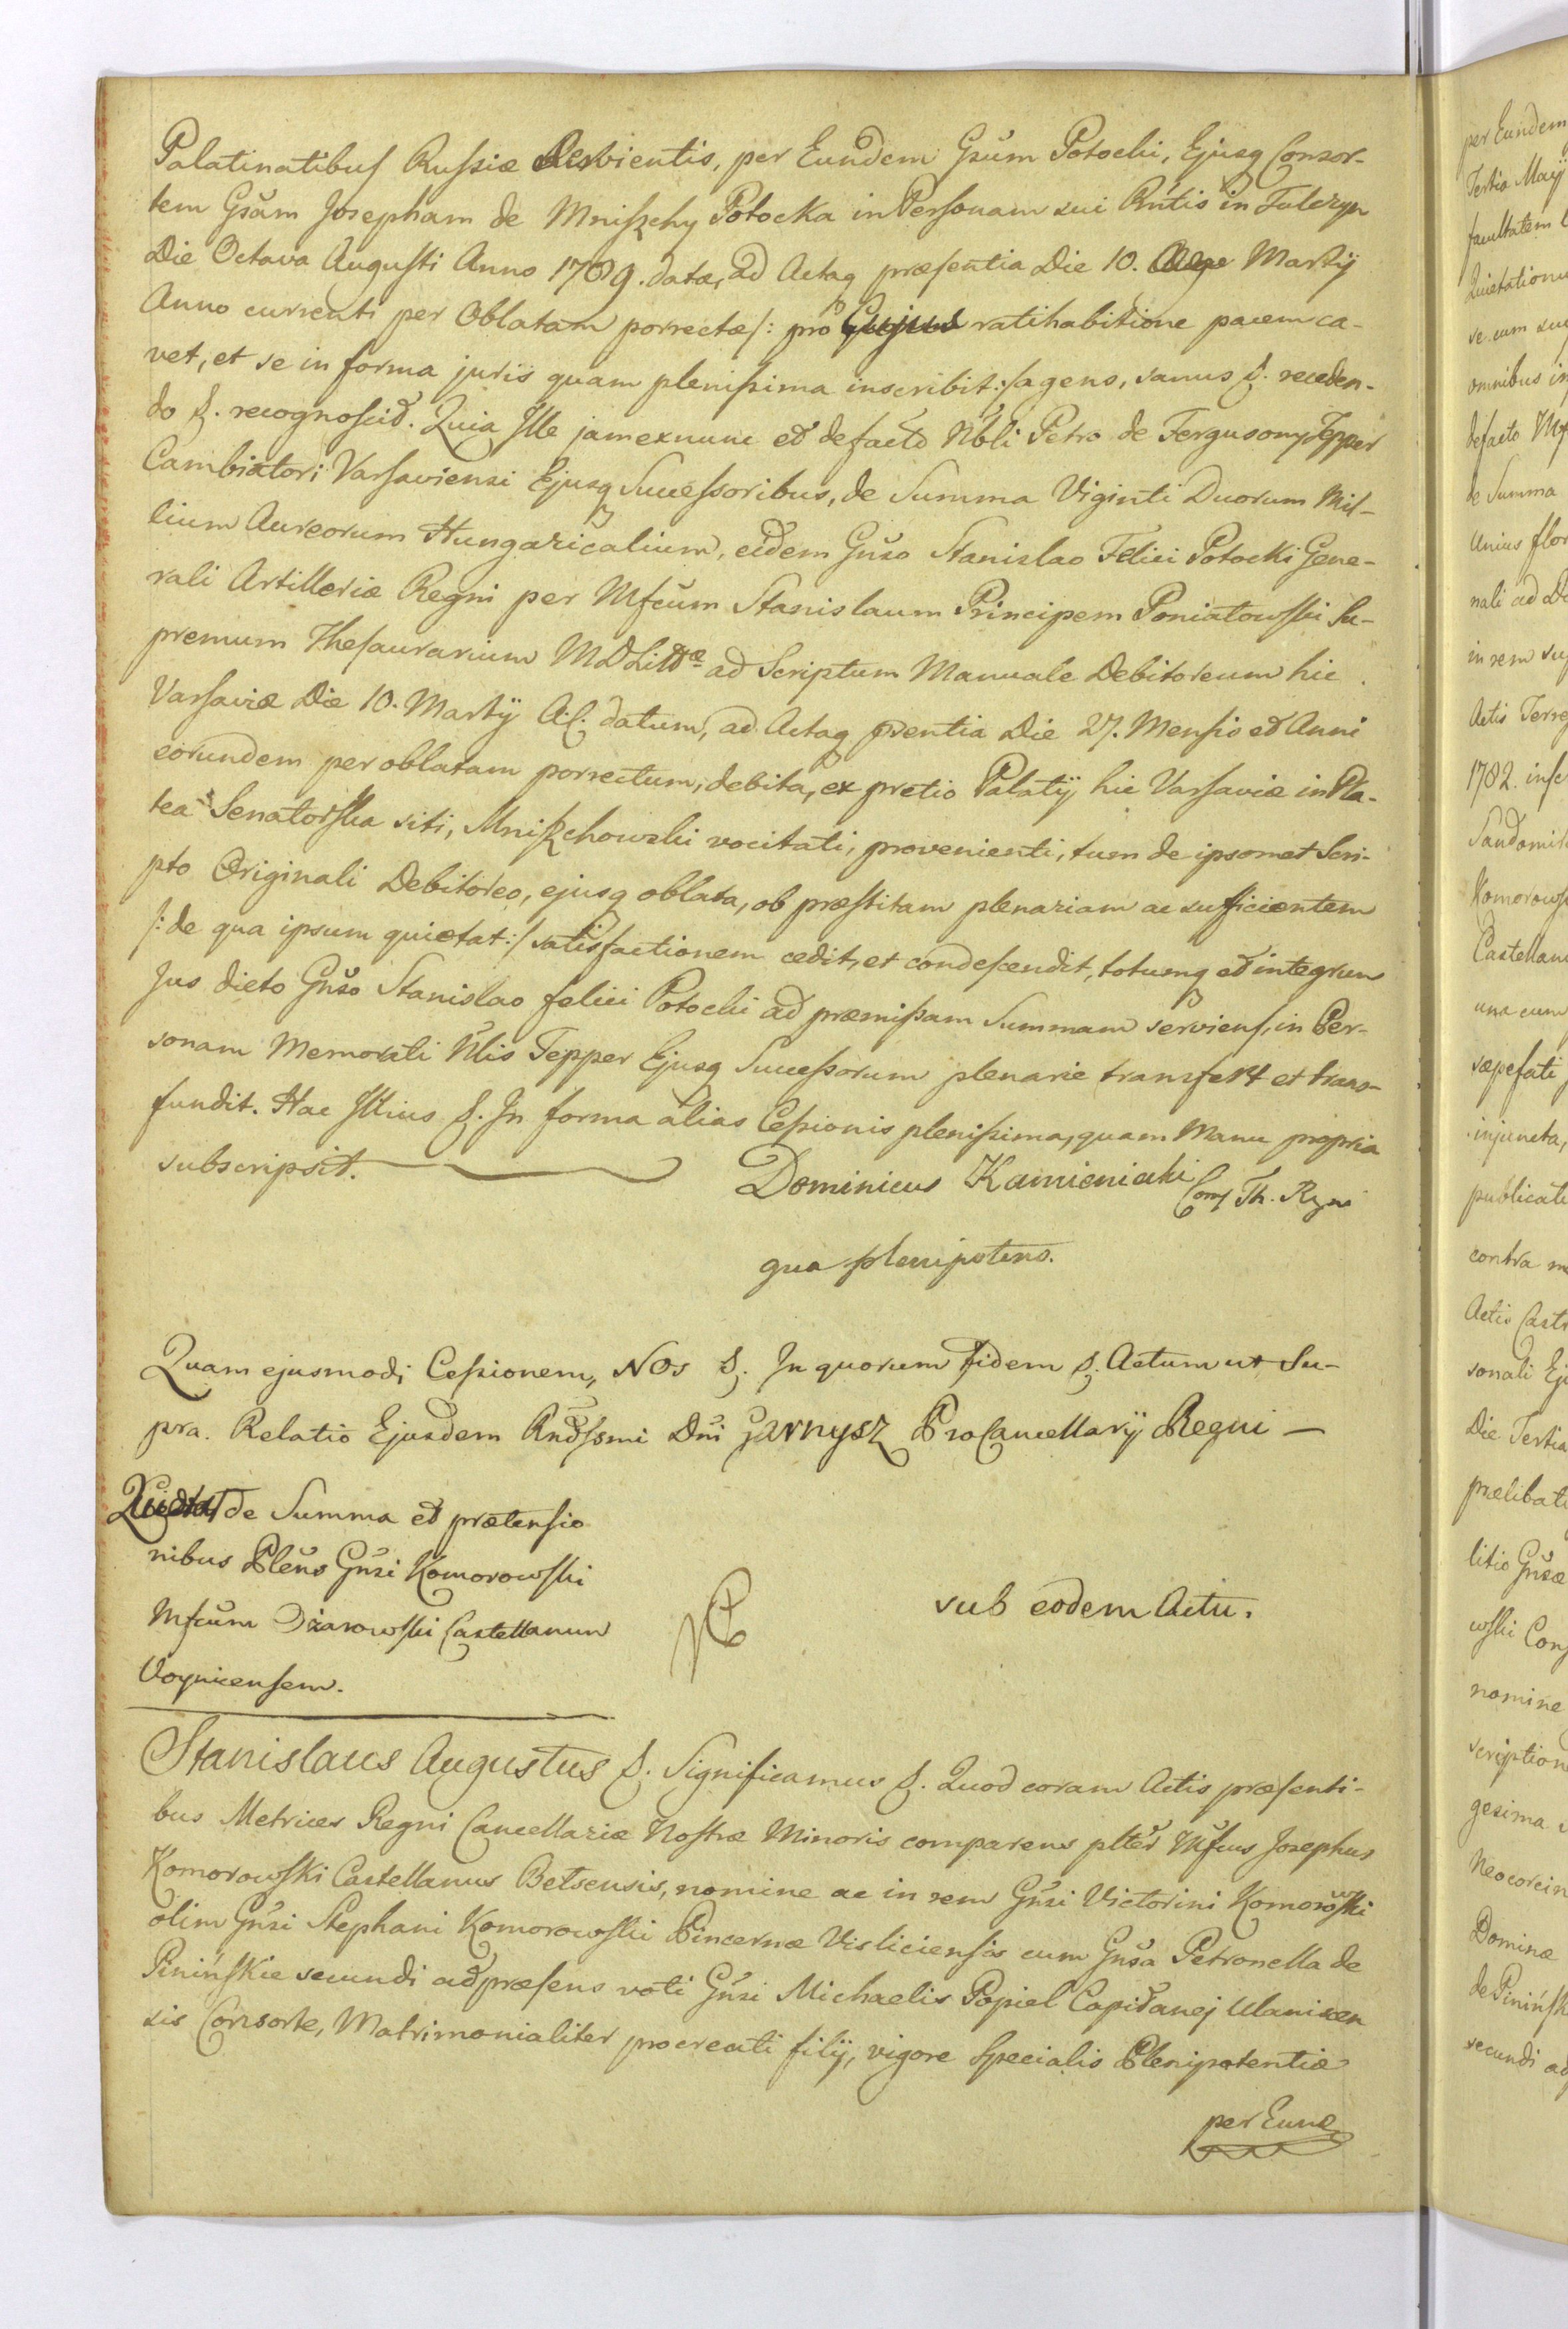 Palatinatibus Russiæ Deservientis, per Eundem Gsũm Potocki, Ejusq Consor-
tem Gsãm Josepham de Mniszchy Potocka in Personam sui Rntis in Tulczyn
Die Octava Augusti Anno 1789. datæ, ad Actaq præsentia Die 10. Martij
Anno currenti per Oblatam porrectæ/: pro Cujus ratihabitione pacem ca-
vet, et se in forma juris quam plenissima inscribit:/ agens, sanus &. receden-
do &. recognoscit. Quia Ille jam exnunc et defacto Nbli Petro de Fergusony Tepper
Cambiatori Varsaviensi Ejusq Successoribus, de Summa Viginti Duorum Mil-
lium Aureorum Hungaricalium, eidem Gnso Stanislao Felici Potocki Gene-
rali Artilleriæ Regni per Mfcum Stanislaum Principem Poniatowski Su-
premum Thesaurarium MDLittæ ad Scriptum Manuale Debitoreum hic
Varsaviæ Die 10. Martij A.C. datum, ad Actaq prentia Die 27. Mensis et Anni
eorundem per oblatam porrectum, debita, ex pretio Palatij hic Varsaviæ in Pla-
tea Senatorska siti, Mniszchowski vocitati, provenienti, tum de ipsomet Scri-
pto Originali Debitoreo, ejusq oblata, ob præstitam plenariam ac sufficientem
/: de qua ipsum quietat:/ satisfactionem cedit, et condescendit, totumq et integrum
Jus dicto Gnso Stanislao felici Potocki ad præmissam Summam serviens, in Per-
sonam Memorati Nlis Tepper Ejusq Successorum plenarie transfert et trans-
fundit. Hac Illius &. In forma alias Cessionis plenissima, quam Manu propria
subscripsit.
Dominicus Kamieniecki
Coms Th. Regni
qua plenipotens.
Quam ejusmodi Cessionem, Nos &. In quorum Fidem &. Actum ut Su-
pra. Relatio Ejusdem Rndssmi Dni Garnysz ProCancellarij Regni —
Quietat de Summa et prætensio
nibus Plens Gnsi Komorowski
Mfcum Ożarowski Castellanum
Voynicensem.
sub eodem Actu.
Stanislaus Augustus &. Significamus &. Quod coram Actis præsenti-
bus Metrices Regni Cancellariæ Nostræ Minoris comparens plter Mfcus Josephus
Komorowski Castellanus Betsensis, nomine ac in rem Gnsi Victorini Komorowski
olim Gnsi Stephani Komorowski Pincernæ Visliciensis cum Gnsa Petronella de
Pinińskie secundi ad præsens voti Gnsi Michaelis Popiel Capitanej Ulanicen
sis Consorte, Matrimonialiter procreati filij, vigore Specialis Plenipotentiæ
per Eund
per Eundem
Tertia Maij
facultatem
Quietationu
se cum suc
omnibus in
defacto Mf
de Summa
Unius flor
nali ad De
in rem su
Actis Terre
1782. insc
Sandomir
Komorows
Castellan
una cum
sæpefati
injuncta,
publicati
contra
Actis Castr
sonali Ej
Die Tertia
prælibati
litio Gnsæ
wski Con
nomine
scription
gesima
Neocorcin
Dominæ
de Pinińsk
secundi ad